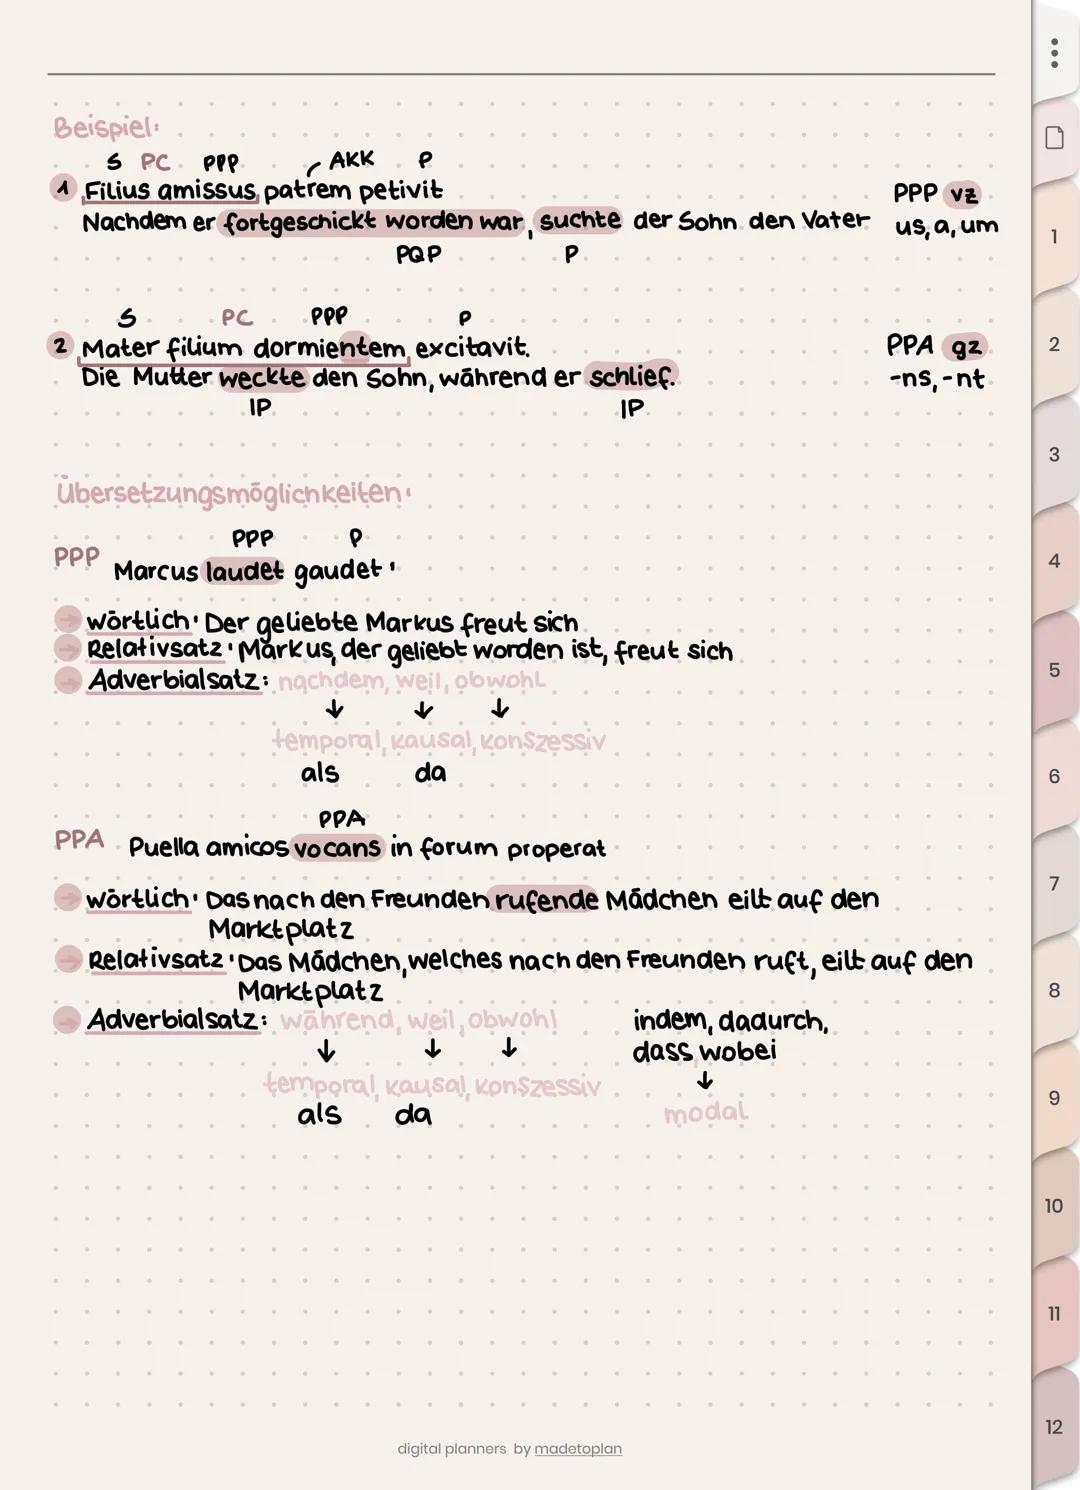 Beispiel:
S PC PPP AKK P
1 Filius amissus patrem petivit
Nachdem er fortgeschickt worden war, suchte der Sohn den Vater
PPP vz
us, a, um
PQP P
S PC PPP P
2 Mater filium dormientem excitavit.
Die Mutter weckte den Sohn, während er schlief.
PPA gz
-ns, -nt
IP IP
Übersetzungsmöglichkeiten:
PPP P
PPP Marcus laudet gaudet:
→ wörtlich: Der geliebte Markus freut sich
→ Relativsatz: Markus, der geliebt worden ist, freut sich
→ Adverbialsatz: nachdem, weil, obwohl
↓ ↓ ↓
temporal, kausal, konszessiv
als da
PPA
PPA Puella amicos vocans in forum properat
→ wörtlich: Das nach den Freunden rufende Mädchen eilt auf den
Marktplatz
→ Relativsatz: Das Mädchen, welches nach den Freunden ruft, eilt auf den
Marktplatz
→ Adverbialsatz: während, weil, obwohl
↓ ↓ ↓
temporal, kausal, konszessiv
als da
indem, dadurch,
dass, wobei
↓
modal
digital planners by madetoplan
1
2
3
4
5
6
7
8
9
10
11
12